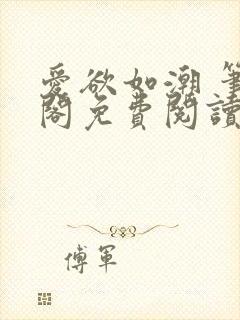 愛欲如潮 筆
閣免費閱讀
傅軍